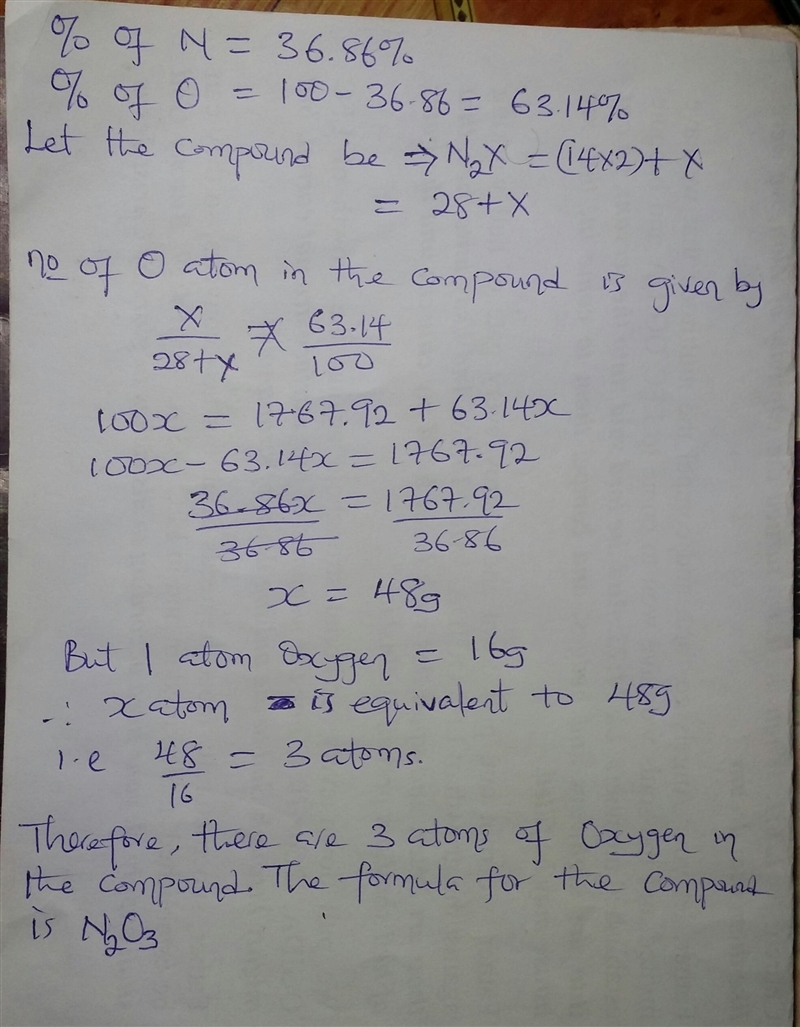 % of N = 36.86%
% of O = 100 - 36.86 = 63.14%
Let the compound be ⇒ N₂X = (14×2) + X
= 28 + X
no of O atom in the compound is given by
X/28+x = 63.14/100
100x = 1767.92 + 63.14x
100x - 63.14x = 1767.92
36.86x/36.86 = 1767.92/36.86
x = 48g
But 1 atom Oxygen = 16g
∴ x atom is equivalent to 48g
i.e 48/16 = 3 atoms.
Therefore, there are 3 atoms of Oxygen in
the compound. The formula for the compound
is N₂O₃